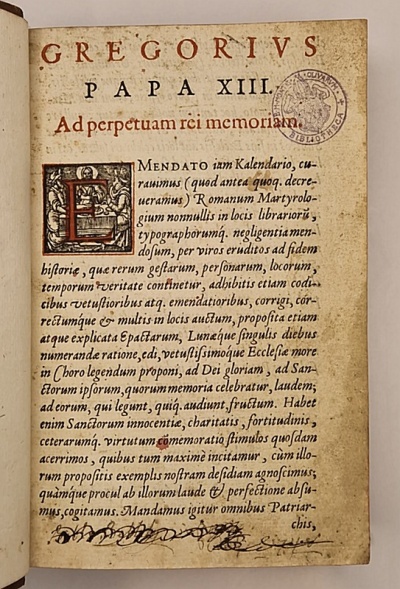 GREGORIVS
PAPA XIII.
Ad perpetuam rei memoriam.
BIBLIOTHECA
EMENDATO iam Kalendario, cu-
rauimus (quod antea quoq. decre-
ueramus) Romanum Martyrolo-
gium nonnullis in locis librariorũ,
typographorumq́. negligentia men-
dosum, per viros eruditos ad fidem
historiæ, quæ rerum gestarum, personarum, locorum,
temporum veritate continetur, adhibitis etiam codi-
cibus vetustioribus atq. emendatioribus, corrigi, cor-
rectumque & multis in locis auctum, proposita etiam
atque explicata Epactarum, Lunæque singulis diebus
numerandæ ratione, edi, vetustissimoque Ecclesiæ more
in Choro legendum proponi, ad Dei gloriam, ad San-
ctorum ipsorum, quorum memoria celebratur, laudem;
ad eorum, qui legunt, quiq́. audiunt, fructum. Habet
enim Sanctorum innocentiæ, charitatis, fortitudinis,
ceterarumq́. virtutum cõmemoratio stimulos quosdam
acerrimos, quibus tum maximè incitamur, cùm illo-
rum propositis exemplis nostram desidiam agnoscimus;
quámque procul ab illorum laude & perfectione absu-
mus, cogitamus. Mandamus igitur omnibus Patriar-
chis,